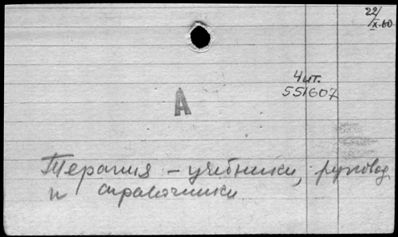 22/
X.60
4 шт.
551607
А
Терапия – учебники, руковод
и справочники